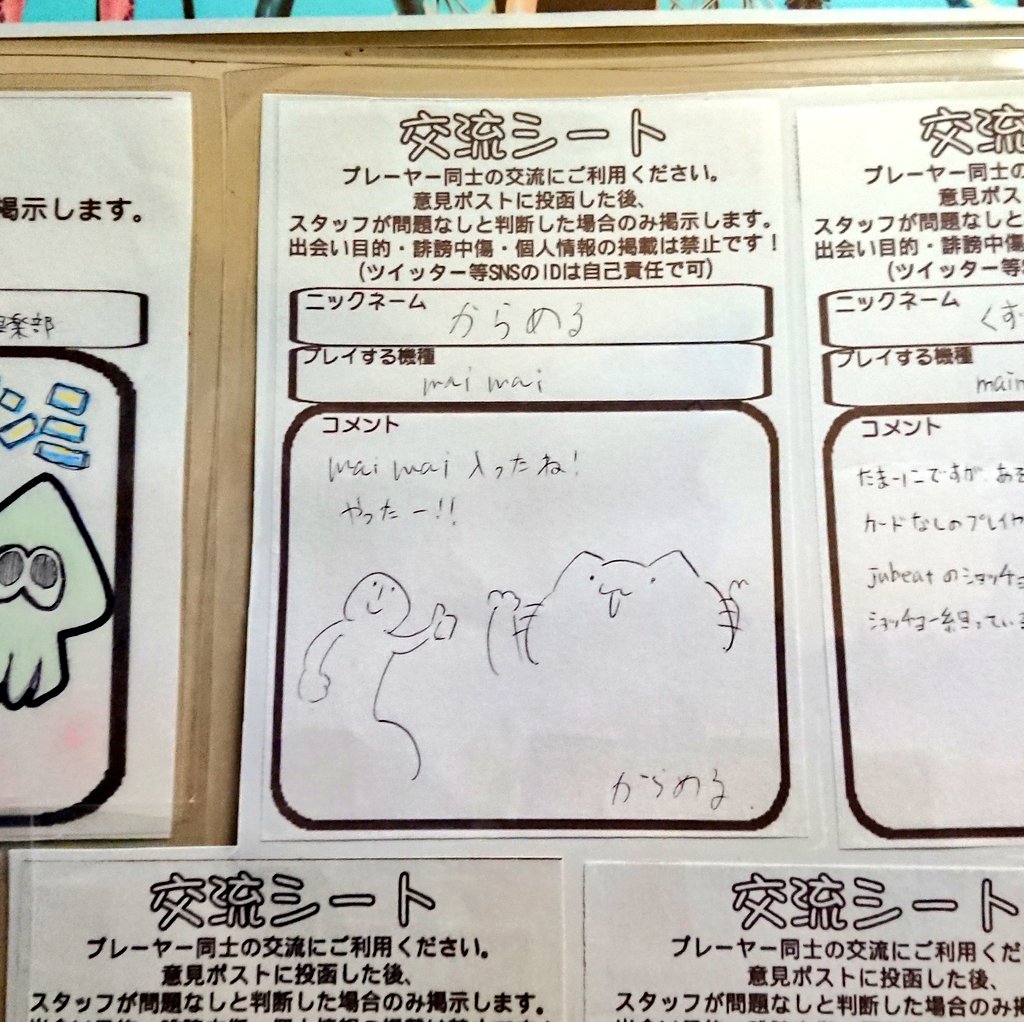 掲示します。
楽部
交流シート
プレーヤー同士の交流にご利用ください。
意見ポストに投函した後、
スタッフが問題なしと判断した場合のみ掲示します。
出会い目的・誹謗中傷・個人情報の掲載は禁止です！
(ツイッター等SNSのIDは自己責任で可)
ニックネーム
からめる
プレイする機種
mai mai
コメント
mai mai 入ったね!
やったー!!
からめる
交流
プレーヤー同士の
意見ポス
スタッフが問題なしと
出会い目的・誹謗中傷
(ツイッター等
ニックネーム
くず
プレイする機種
maim
コメント
たまーにですが、ある
カードなしのプレイヤ
jubeatのショッチョ
交流シート
プレーヤー同士の交流にご利用ください。
意見ポストに投函した後、
スタッフが問題なしと判断した場合のみ掲示します。
交流シート
プレーヤー同士の交流にご利用くださ
意見ポストに投函した後、
スタッフが問題なしと判断した場合のみ掲